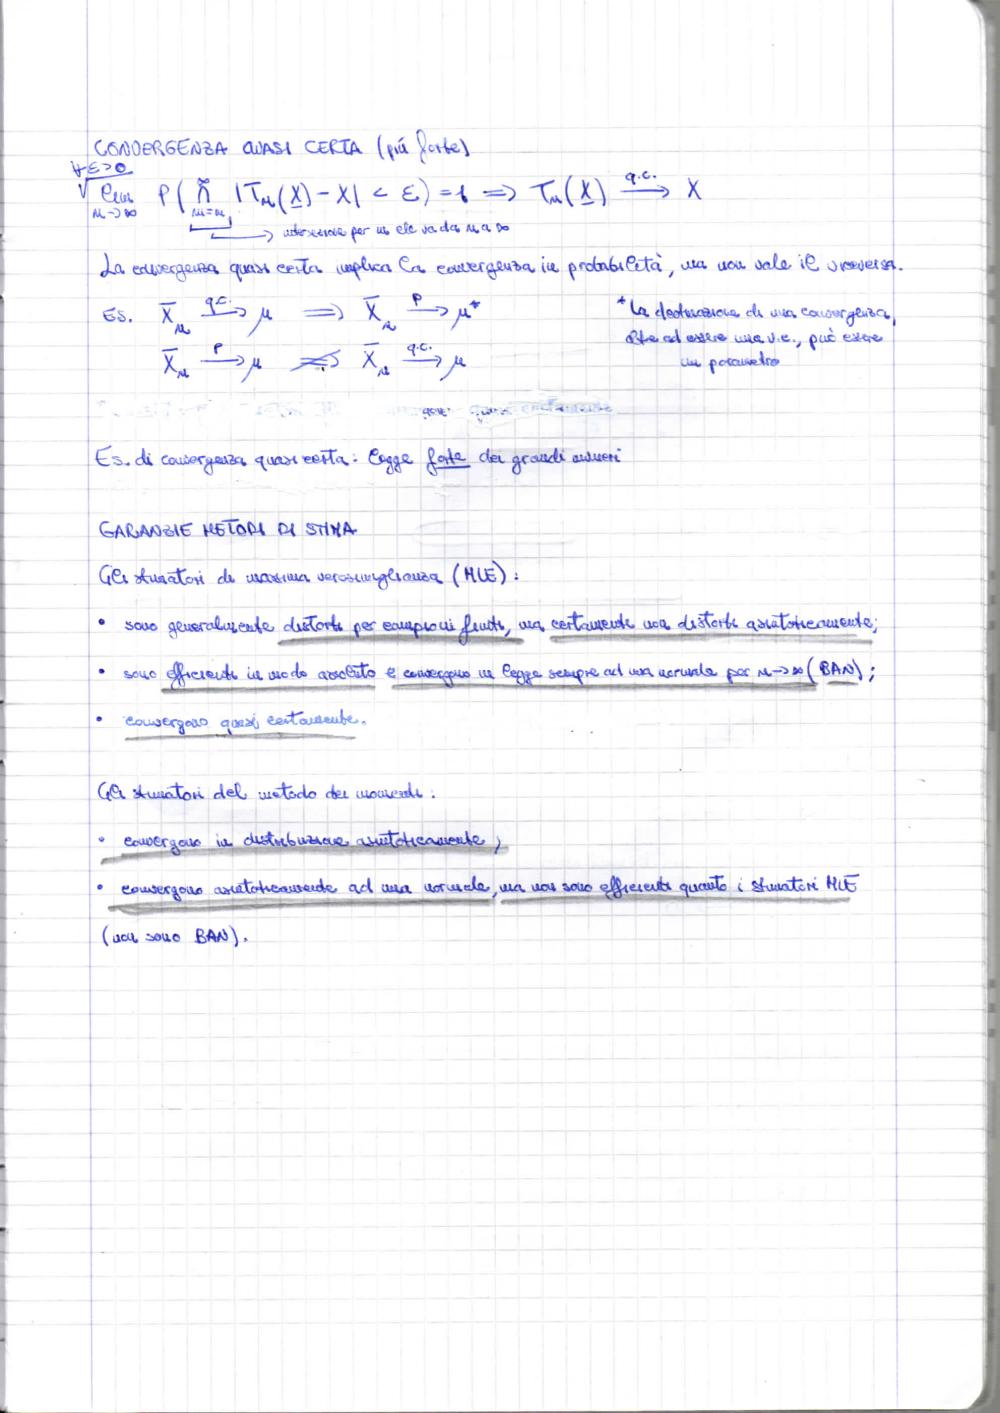 CONVERGENZA QUASI CERTA (più forte)
∀ε>0
lim n→∞ P(∩ m=n ∞ |Tm(X) - X| < ε) = 1 ⟹ Tn(X) q.c.→ X
intersezione per m che va da n a ∞
La convergenza quasi certa implica la convergenza in probabilità, ma non vale il viceversa.
ES. X̄n q.c.→ μ ⟹ X̄n P→ μ*
X̄n P→ μ ⇏ X̄n q.c.→ μ
* La destinazione di una convergenza,
oltre ad essere una v.c., può essere
un parametro
Es. di convergenza quasi certa: legge forte dei grandi numeri
GARANZIE METODI DI STIMA
Gli stimatori di massima verosimiglianza (MLE):
• sono generalmente distorti per campioni finiti, ma certamente non distorti asintoticamente;
• sono efficienti in modo assoluto e convergono in legge sempre ad una normale per n→∞ (BAN);
• convergono quasi certamente.
Gli stimatori del metodo dei momenti:
• convergono in distribuzione asintoticamente;
• convergono asintoticamente ad una normale, ma non sono efficienti quanto i stimatori MLE
(non sono BAN).